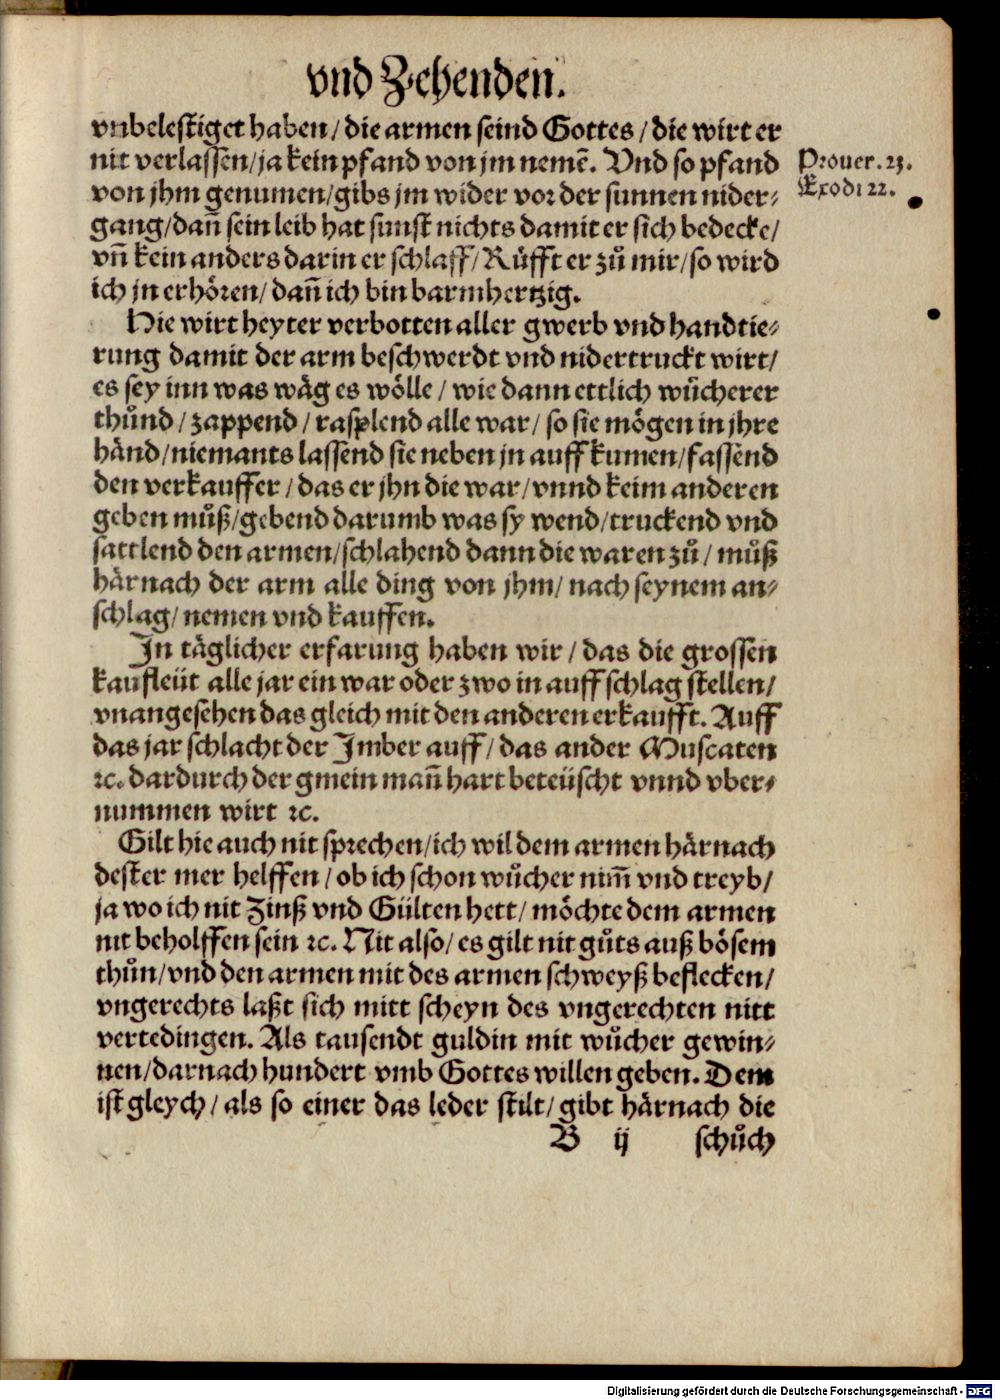 vnd Zehenden.
vnbelestiget haben / die armen seind Gottes / die wirt er
nit verlassen / ja kein pfand von jm nemē. Vnd so pfand
Prouer. 23.
von jhm genumen / gibs jm wider vor der sunnen nider⸗
Exodi 22.
gang / dañ sein leib hat sunst nichts damit er sich bedecke /
vñ kein anders darin er schlaff / Růfft er zů mir / so wird
ich jn erhören / dañ ich bin barmhertzig.
Hie wirt heyter verbotten aller gwerb vnd handtie⸗
rung damit der arm beschwerdt vnd nidertruckt wirt /
es sey inn was wäg es wölle / wie dann ettlich wůcherer
thůnd / zappend / rasplend alle war / so sie mögen in jhre
händ / niemants lassend sie neben jn auff kumen / fassend
den verkauffer / das er jhn die war / vnnd keim anderen
geben můß / gebend darumb was sy wend / truckend vnd
sattlend den armen / schlahend dann die waren zů / můß
härnach der arm alle ding von jhm / nach seynem an⸗
schlag / nemen vnd kauffen.
In täglicher erfarung haben wir / das die grossen
kaufleüt alle jar ein war oder zwo in auffschlag stellen /
vnangesehen das gleich mit den anderen erkaufft. Auff
das jar schlacht der Imber auff / das ander Muscaten
ꝛc. dardurch der gmein mañ hart beteüscht vnnd vber⸗
nummen wirt ꝛc.
Gilt hie auch nit sprechen / ich wil dem armen härnach
dester mer helffen / ob ich schon wůcher nim̃ vnd treyb /
ja wo ich nit Zinß vnd Gülten hett / möchte dem armen
nit beholffen sein ꝛc. Nit also / es gilt nit gůts auß bösem
thůn / vnd den armen mit des armen schweyß beflecken /
vngerechts laßt sich mitt scheyn des vngerechten nitt
vertedingen. Als tausendt guldin mit wůcher gewin⸗
nen / darnach hundert vmb Gottes willen geben. Dem
ist gleych / als so einer das leder stilt / gibt härnach die
B ij schůch
Digitalisierung gefördert durch die Deutsche Forschungsgemeinschaft - DFG